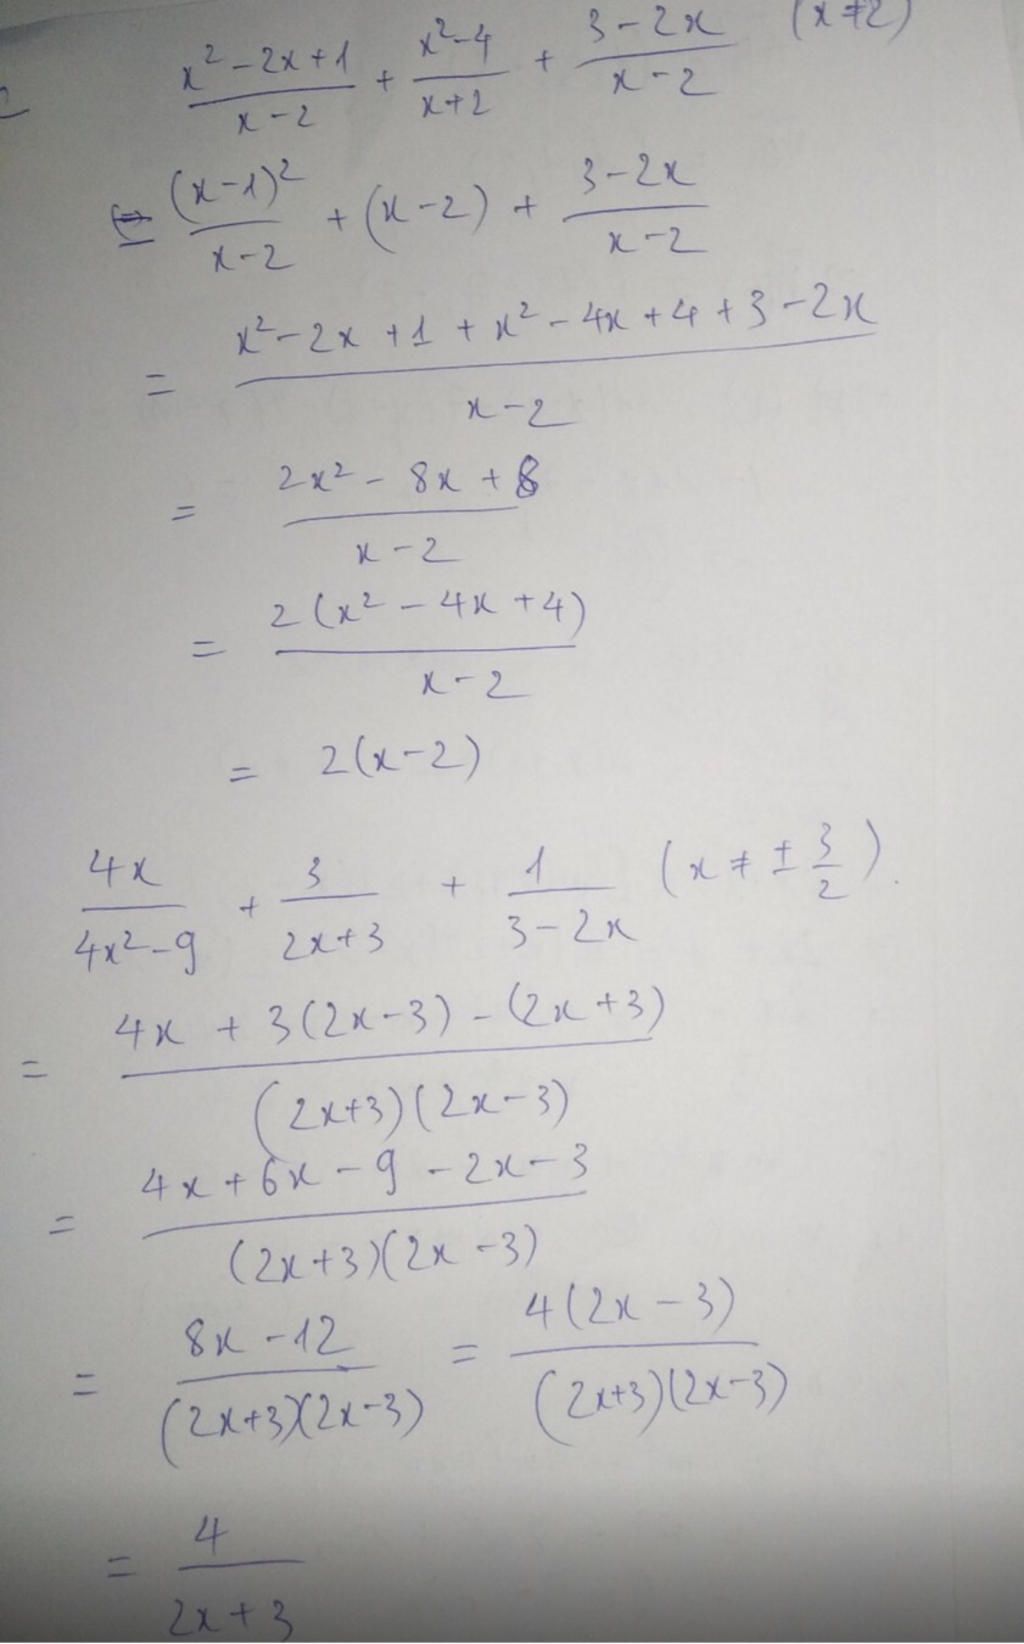 (x² - 2x + 1)/(x - 2) + (x² - 4)/(x + 2) + (3 - 2x)/(x - 2) (x ≠ 2)
= (x - 1)²/(x - 2) + (x - 2) + (3 - 2x)/(x - 2)
= (x² - 2x + 1 + x² - 4x + 4 + 3 - 2x)/(x - 2)
= (2x² - 8x + 8)/(x - 2)
= 2(x² - 4x + 4)/(x - 2)
= 2(x - 2)
4x/(4x² - 9) + 3/(2x + 3) + 1/(3 - 2x) (x ≠ ± 3/2).
= (4x + 3(2x - 3) - (2x + 3))/((2x + 3)(2x - 3))
= (4x + 6x - 9 - 2x - 3)/((2x + 3)(2x - 3))
= (8x - 12)/((2x + 3)(2x - 3)) = 4(2x - 3)/((2x + 3)(2x - 3))
= 4/(2x + 3)